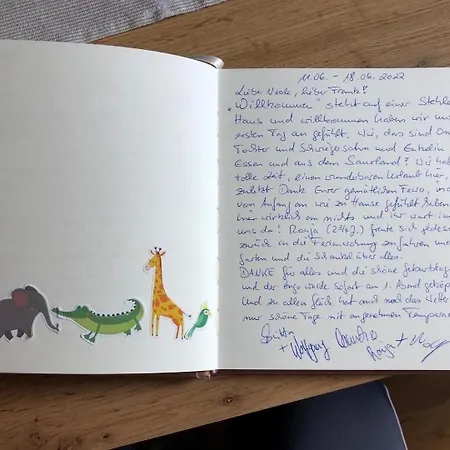 11.06. – 18.06.2022
Liebe Nicole, lieber Frank!
„Willkommen" steht auf einer Stehle
Haus und willkommen haben wir uns
ersten Tag an gefühlt. Wir, das sind
Tochter und Schwiegersohn und Enkelin
Essen und aus dem Sauerland!
tolle Zeit, einen wunderbaren Urlaub hier,
zuletzt Dank Eurer gemütlichen Fewo,
von Anfang an wie zu Hause gefühlt haben
hier wirklich an nichts und ihr wart im
uns da! Ronja freute sich jedes
zurück in die Ferienwohnung zu fahren und
Garten und die Schaukel über alles.
DANKE für alles und die schöne Geburtstag
und der Hugo wurde sofort am 1. Abend geköpf
Und zu allem Glück hat auch noch das Wetter
nur schöne Tage mit angenehmen Temperat
+ Wolfgang
Ronja +